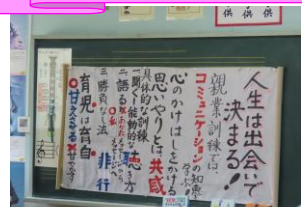 人生は出会いで
決まる!
親業訓練では、
コミュニケーションの知恵
学ぶ!
心のかけはしをかける
思いやりとは共感
具体的な訓練
一.聞く
能動的な聴き方
二.語る
三.勝負なし法
非行
育児は育自
甘えさせる
供 供 供